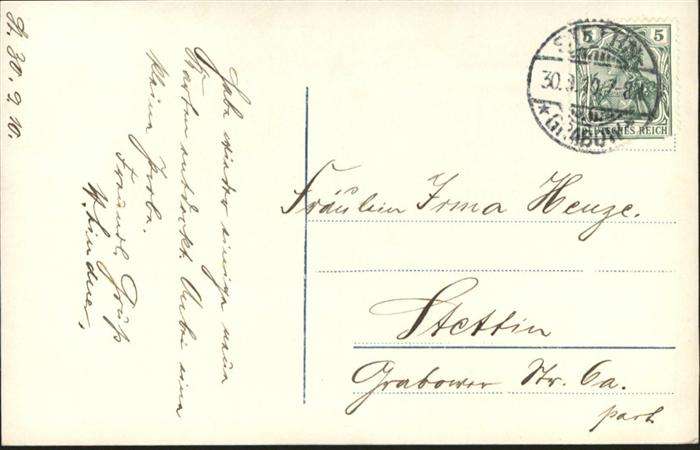 St. 30.9.10.
Habe wieder einige neue
Karten entdeckt. Anbei eine
kleine Probe.
Freundl. Gruß
STETTIN
30.9.10. 7-8
* (GRABOW) *
5 5
DEUTSCHES REICH
Fräulein Irma Henze.
Stettin
Grabower Str. 6a.
part.